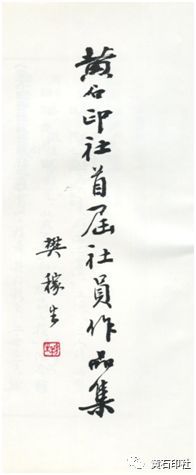 黄石印社首届社員作品集
樊稼生
黄石印社